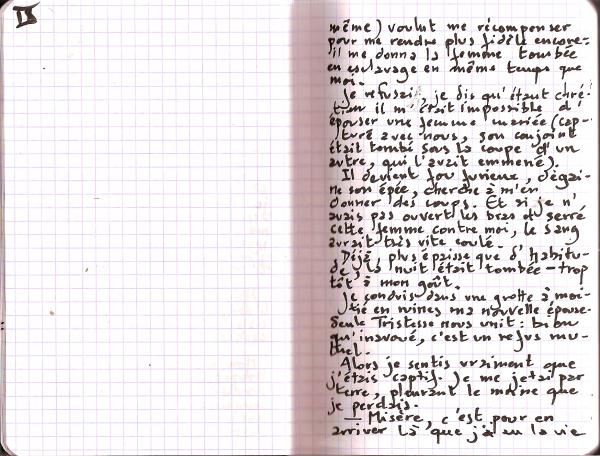 II
même) voulut me récompenser
pour me rendre plus fidèle encore:
il me donna la femme tombée
en esclavage en même temps que
moi.
Je refusai, je dis qu'étant chré-
tien il m'était impossible d'
épouser une femme mariée (cap-
turé avec nous, son conjoint
était tombé sous la coupe d'un
autre, qui l'avait emmené).
Il devient fou furieux, dégai-
ne son épée, cherche à m'en
donner des coups. Et si je n'
avais pas ouvert les bras et serré
cette femme contre moi, le sang
aurait très vite coulé.
Déjà, plus épaisse que d'habitu-
de, la nuit était tombée – trop
tôt à mon goût.
Je conduis dans une grotte à moi-
tié en ruines ma nouvelle épouse.
Seule Tristesse nous unit: bien
qu'inavoué, c'est un refus mu-
tuel.
Alors je sentis vraiment que
j'étais captif. Je me jetai par
terre, pleurant le moine que
je perdais.
— Misère, c'est pour en
arriver là que j'ai eu la vie